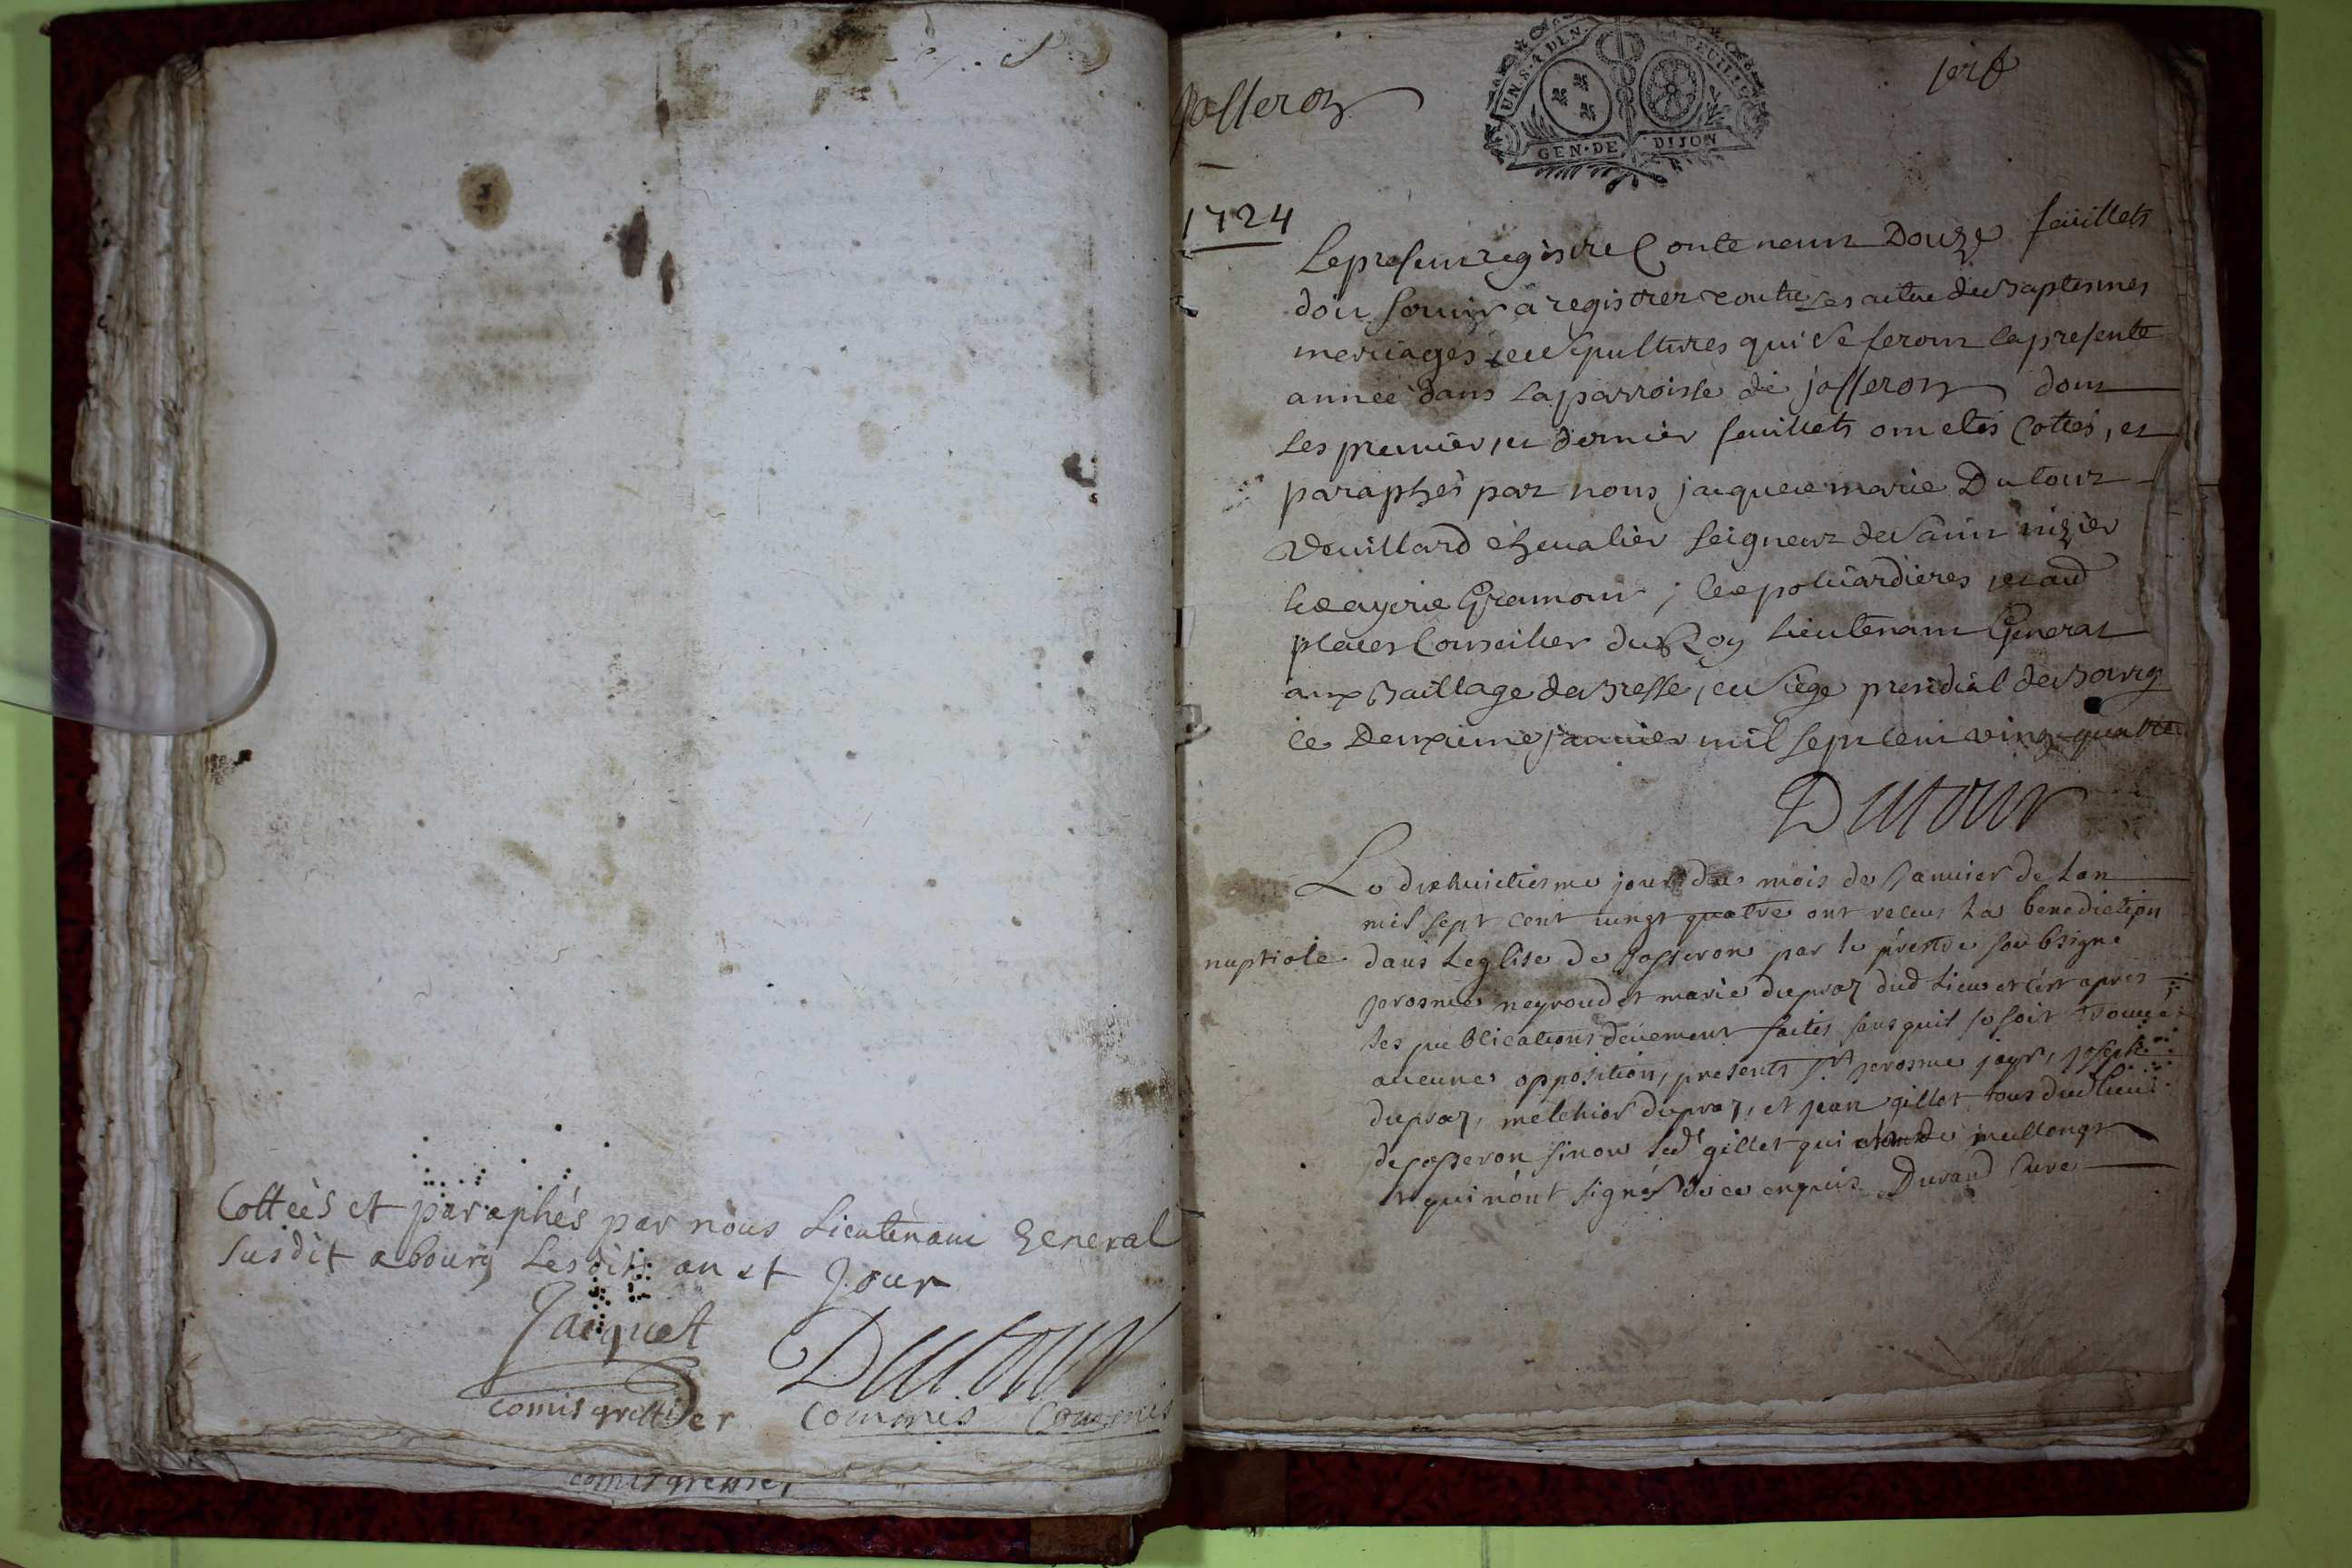 Cottées et paraphés par nous Lieutenant General
susdit a bourg Lesdits an et Jour
Jacquet
Dutour
comis greffier commis Commis
comis greffier
Josseron
UN.S.4 DEN. LA FEUILLE
GEN·DE DIJON
1er f
1724
Le present registre Contenant Douze feüillets
doit servir a registrer toutes les actes de baptesmes
mariages et sepultures qui se feront la presente
année dans la parroisse de josseron dont
Les premier, et dernier feuillets ont etés Cottés, et
paraphés par nous jacque marie Dutour
Vuillard chevalier seigneur de saint nizier
Gramont, les poliardieres et aud
places Conseiller du Roy Lieutenant General
aux Baillage de bresse, et siege presidial de bourg
le Deuxieme janvier mil sept cent vingt quatre
Dutour
Le dixhuictiesme jour du mois de Janvier de Lan
mil sept cent vingt quatre ont receus La benediction
nuptiale dans Leglise de Josseron par le prestre soubsigné
Jerosme neyroud et marie dupraz dud Lieu et c'est apres
les publications deüement faites sans quil se soit trouvé
aucune opposition, presents Sr Jerosme jayr, joseph
dupraz, melchior dupraz, et jean gillet tous dud lieu
de josseron sinon led gillet qui est de
et qui n'ont signés de ce enquis. Durand Curé